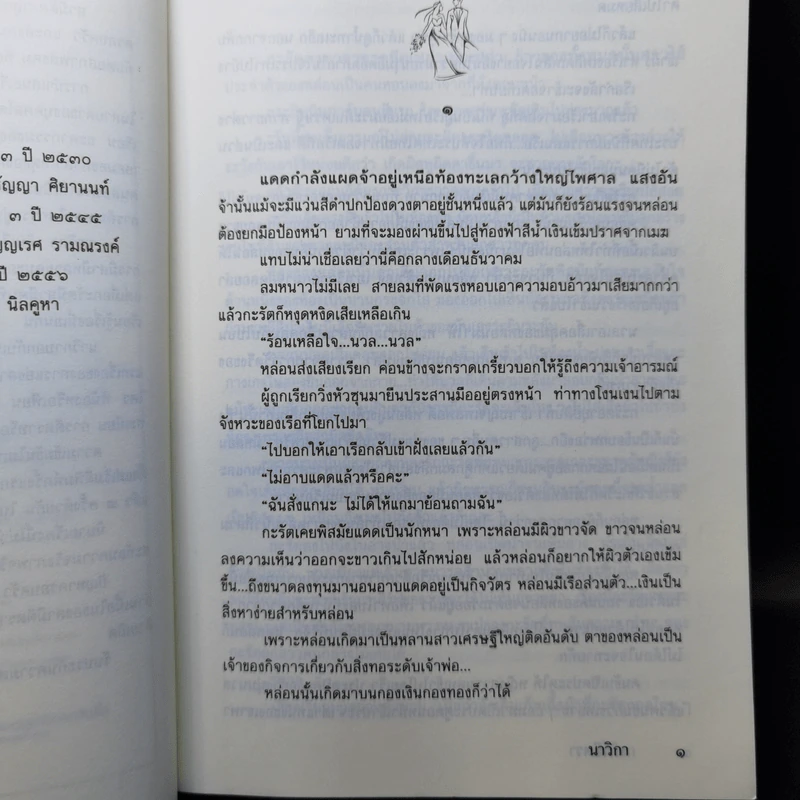 ๓ ปี ๒๕๓๐
ัญญา ศิยานนท์
๓ ปี ๒๕๔๕
ญเรศ รามณรงค์
ปี ๒๕๕๖
นิลคูหา
๑
แดดกำลังแผดจ้าอยู่เหนือท้องทะเลกว้างใหญ่ไพศาล แสงอัน
จ้านั้นแม้จะมีแว่นสีดำปกป้องดวงตาอยู่ชั้นหนึ่งแล้ว แต่มันก็ยังร้อนแรงจนหล่อน
ต้องยกมือป้องหน้า ยามที่จะมองผ่านขึ้นไปสู่ท้องฟ้าสีน้ำเงินเข้มปราศจากเมฆ
แทบไม่น่าเชื่อเลยว่านี่คือกลางเดือนธันวาคม
ลมหนาวไม่มีเลย สายลมที่พัดแรงหอบเอาความอบอ้าวมาเสียมากกว่า
แล้วกะรัตก็หงุดหงิดเสียเหลือเกิน
“ร้อนเหลือใจ...นวล...นวล”
หล่อนส่งเสียงเรียก ค่อนข้างจะกราดเกรี้ยวบอกให้รู้ถึงความเจ้าอารมณ์
ผู้ถูกเรียกวิ่งหัวซุนมายืนประสานมืออยู่ตรงหน้า ท่าทางโงนเงนไปตาม
จังหวะของเรือที่โยกไปมา
“ไปบอกให้เอาเรือกลับเข้าฝั่งเลยแล้วกัน”
“ไม่อาบแดดแล้วหรือคะ”
“ฉันสั่งแกนะ ไม่ได้ให้แกมาย้อนถามฉัน”
กะรัตเคยพิสมัยแดดเป็นนักหนา เพราะหล่อนมีผิวขาวจัด ขาวจนหล่อน
ลงความเห็นว่าออกจะขาวเกินไปสักหน่อย แล้วหล่อนก็อยากให้ผิวตัวเองเข้ม
ขึ้น...ถึงขนาดลงทุนมานอนอาบแดดอยู่เป็นกิจวัตร หล่อนมีเรือส่วนตัว...เงินเป็น
สิ่งหาง่ายสำหรับหล่อน
เพราะหล่อนเกิดมาเป็นหลานสาวเศรษฐีใหญ่ติดอันดับ ตาของหล่อนเป็น
เจ้าของกิจการเกี่ยวกับสิ่งทอระดับเจ้าพ่อ...
หล่อนนั้นเกิดมาบนกองเงินกองทองก็ว่าได้
นาวิกา ๑